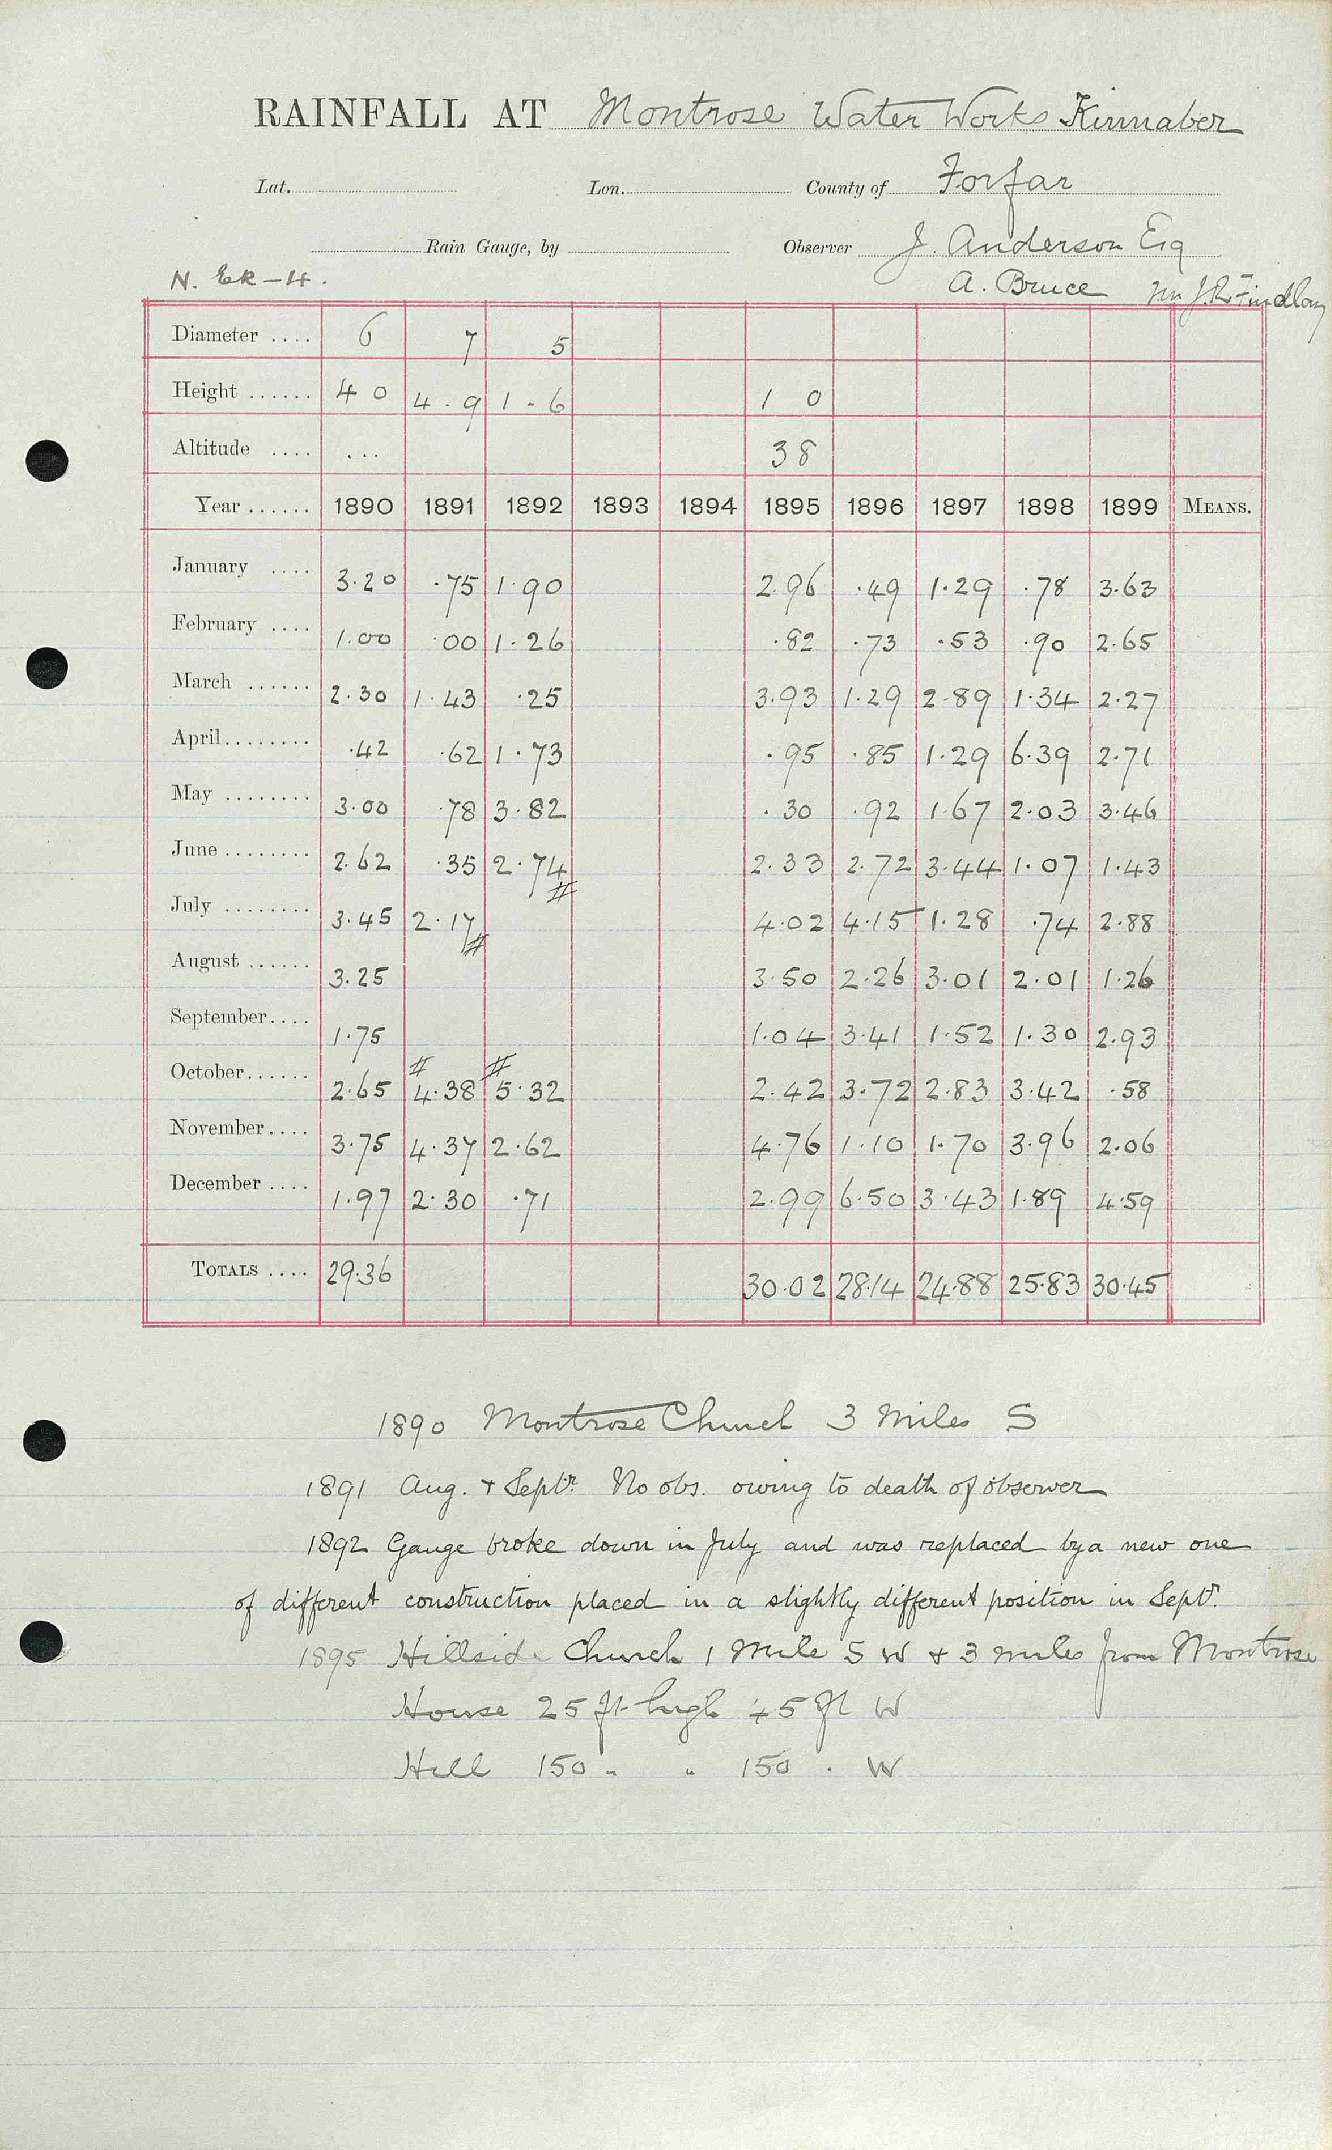 RAINFALL AT Montrose Water Works Kinnaber
Lat. Lon. County of Forfar
Rain Gauge, by Observer J. Anderson Esq
N. Esk-4. A. Bruce J.R. Findlay
Diameter .... 6 7 5
Height ...... 4 0 4 . 9 1 - 6 1 0
Altitude .... ... 38
Year ...... 1890 1891 1892 1893 1894 1895 1896 1897 1898 1899 MEANS.
January .... 3.20 .75 1.90 2.96 .49 1.29 .78 3.63
February .... 1.00 .00 1.26 .82 .73 .53 .90 2.65
March ...... 2.30 1.43 .25 3.93 1.29 2.89 1.34 2.27
April........ .42 .62 1.73 .95 .85 1.29 6.39 2.71
May ........ 3.00 .78 3.82 .30 .92 1.67 2.03 3.46
June ........ 2.62 .35 2.74 2.33 2.72 3.44 1.07 1.43
July ........ 3.45 2.17 # 4.02 4.15 1.28 .74 2.88
August ...... 3.25 # 3.50 2.26 3.01 2.01 1.26
September.... 1.75 1.04 3.41 1.52 1.30 2.93
October...... 2.65 # 4.38 # 5.32 2.42 3.72 2.83 3.42 .58
November.... 3.75 4.37 2.62 4.76 1.10 1.70 3.96 2.06
December .... 1.97 2.30 .71 2.99 6.50 3.43 1.89 4.59
TOTALS .... 29.36 30.02 28.14 24.88 25.83 30.45
1890 Montrose Church 3 Miles S
1891 Aug. + Septr. No obs. owing to death of observer
1892 Gauge broke down in July and was replaced by a new one
of different construction placed in a slightly different position in Septr.
1895 Hillside Church 1 Mile S W + 3 miles from Montrose
House 25 ft high 45 ft W
Hill 150 " " 150 . W